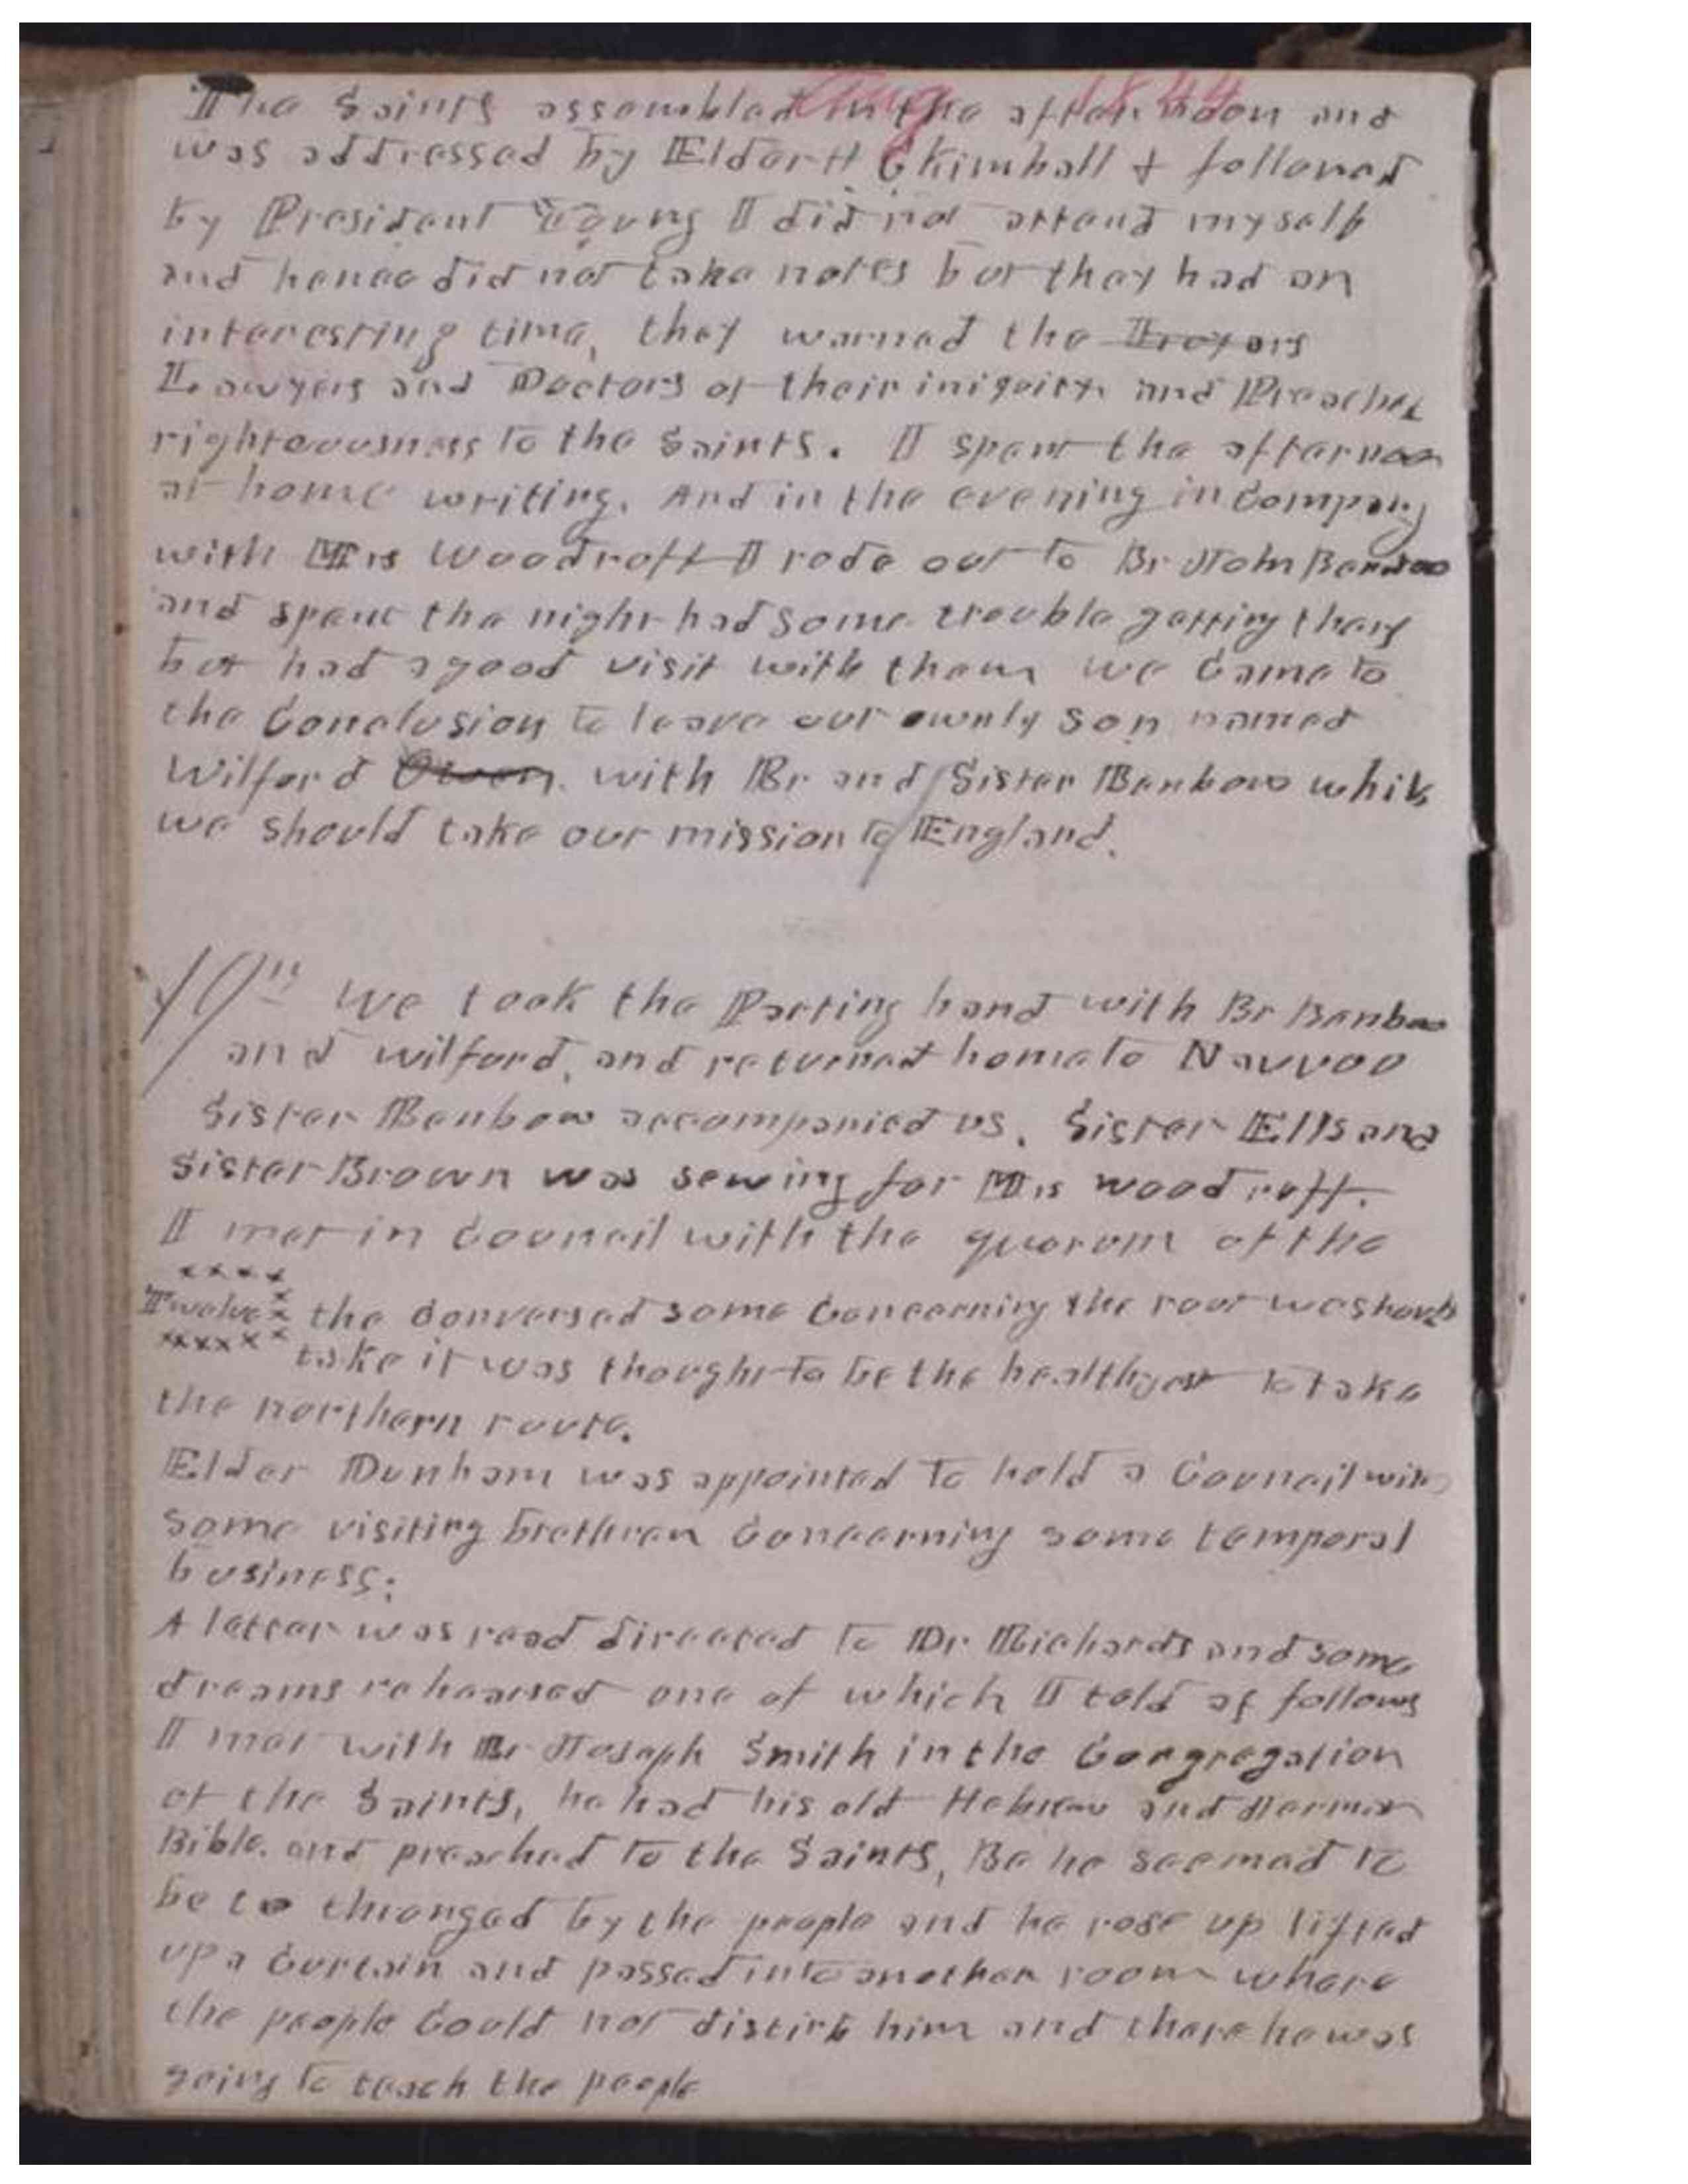 Aug 1844
The Saints assembled in the afternoon and
was addressed by Elder H C Kimball & followed
by President Young I did not attend myself
and hence did not take notes but they had an
interesting time, they warned the
Lawyers and Doctors of their iniquity and Preached
righteousness to the Saints. I spent the afternoon
at home writing. And in the evening in Company
with Mrs Woodruff I rode out to Br John Benbow
and spent the night had some trouble getting there
but had a good visit with them we Came to
the Conclusion to leave our ownly son named
Wilford Owen with Br and Sister Benbow while
we should take our mission to England.
10th We took the Parting hand with Br Benbow
and wilford, and returned home to Nauvoo
Sister Benbow accompanied us. Sister Ells and
Sister Brown was sewing for Mrs woodruff.
I met in Council with the quorum of the
Twelve the Conversed some Concerning the rout we should
take it was thought to be the healthyest to take
the northern route.
Elder Dunham was appointed to hold a Council with
some visiting brethren Concerning some temporal
business;
A letter was read directed to Dr Richards and some
dreams rehearsed one of which I told as follows
I met with Br Joseph Smith in the Congregation
of the Saints, he had his old Hebrew and German
Bible. and preached to the Saints, Be he seemed to
be to thronged by the people and he rose up lifted
up a Curtain and passed into another room where
the people Could not distirb him and there he was
going to teach the people